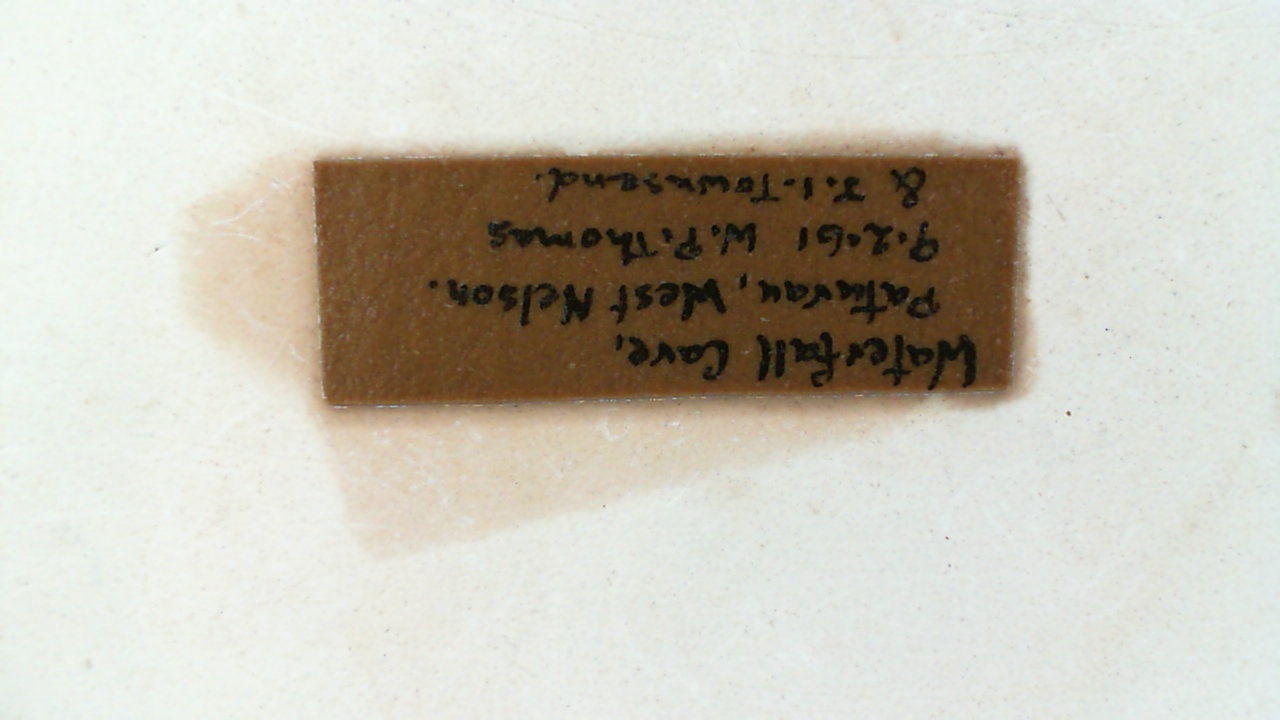 Waterfall Cave,
Paturau, West Nelson.
9.2.61 W.P. Thomas
& J.I. Townsend.